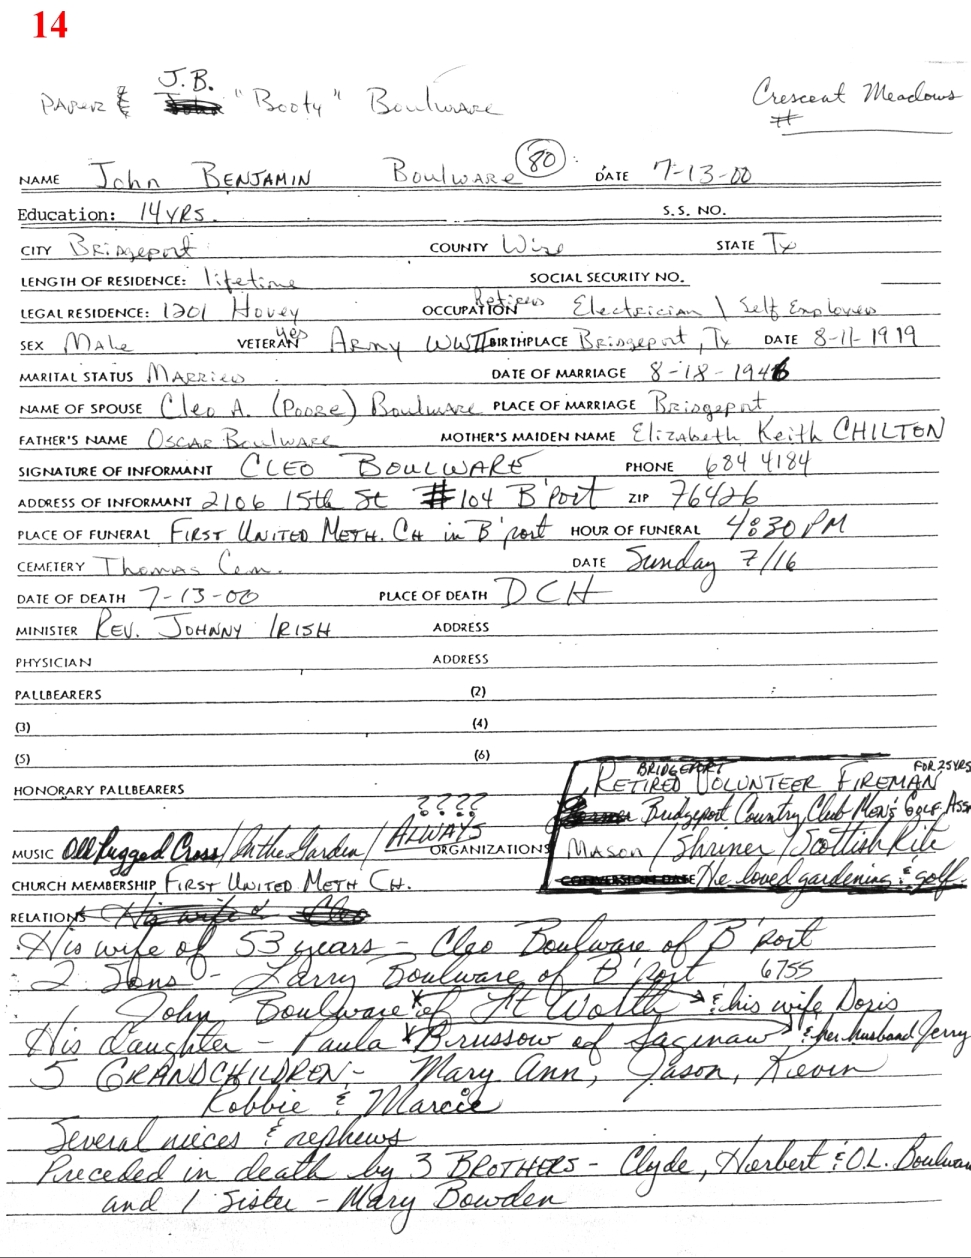 14
J.B.
PAPER & "Booty" Boulware
Crescent Meadows
#
NAME John BENJAMIN Boulware 80 DATE 7-13-00
Education: 14 YRS. S.S. NO.
CITY Bridgeport COUNTY Wise STATE Tx
LENGTH OF RESIDENCE: lifetime SOCIAL SECURITY NO.
LEGAL RESIDENCE: 1201 Hovey OCCUPATION Retired Electrician / Self Employed
SEX Male VETERAN yes Army WWII BIRTHPLACE Bridgeport, Tx DATE 8-11-1919
MARITAL STATUS Married DATE OF MARRIAGE 8-18-1946
NAME OF SPOUSE Cleo A. (Poore) Boulware PLACE OF MARRIAGE Bridgeport
FATHER'S NAME Oscar Boulware MOTHER'S MAIDEN NAME Elizabeth Keith CHILTON
SIGNATURE OF INFORMANT CLEO BOULWARE PHONE 684 4184
ADDRESS OF INFORMANT 2106 15th St #104 B'Port ZIP 76426
PLACE OF FUNERAL FIRST UNITED METH. CH in B'port HOUR OF FUNERAL 4:30 PM
CEMETERY Thomas Cem. DATE Sunday 7/16
DATE OF DEATH 7-13-00 PLACE OF DEATH DCH
MINISTER REV. JOHNNY IRISH ADDRESS
PHYSICIAN ADDRESS
PALLBEARERS (2)
(3) (4)
(5) (6)
BRIDGEPORT FOR 25 YRS
RETIRED VOLUNTEER FIREMAN
HONORARY PALLBEARERS
????
Bridgeport Country Club MEN'S GOLF ASSN
MUSIC Old Rugged Cross / In the Garden / ALWAYS ORGANIZATIONS MASON / Shriner / Scottish Rite
CHURCH MEMBERSHIP FIRST UNITED METH CH. CONVERSION DATE He loved gardening & golf.
RELATIONS His wife Cleo
His wife of 53 years - Cleo Boulware of B'port
2 Sons - Larry Boulware of B'port 6755
John Boulware of Ft Worth & his wife Doris
His daughter - Paula Brussow of Saginaw & her husband Jerry
5 GRANDCHILDREN - Mary Ann, Jason, Kevin
Robbie & Marcie
Several nieces & nephews
Preceded in death by 3 BROTHERS - Clyde, Herbert & O.L. Boulware
and 1 sister - Mary Bowden